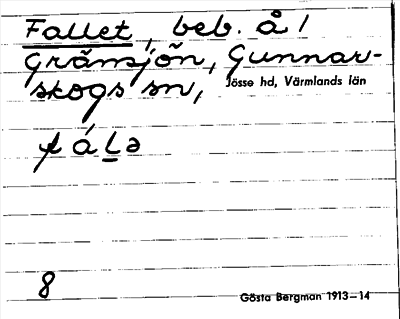 Fallet, beb. å 1
Gränsjön, Gunnar-
skogs sn,
Jösse hd, Värmlands län
fáḷə
8
Gösta Bergman 1913–14